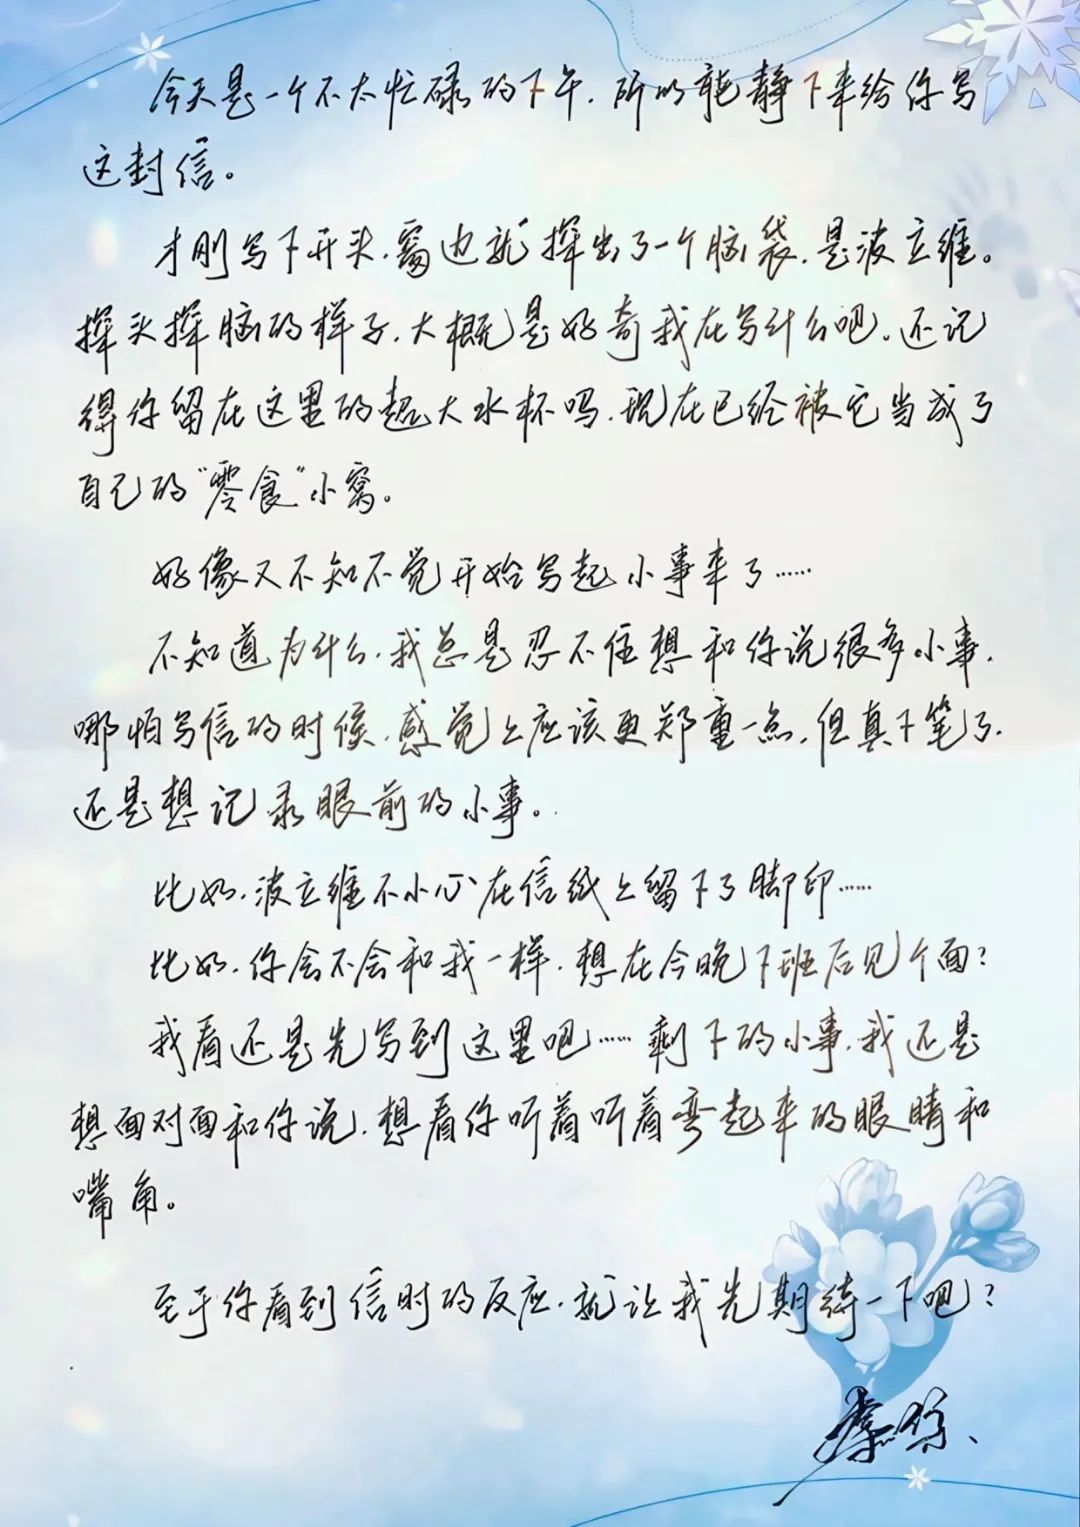 今天是一个不太忙碌的下午，所以能静下来给你写
这封信。
才刚写下开头，窗边就探出了一个脑袋，是波立维。
探头探脑的样子，大概是好奇我在写什么吧。还记
得你留在这里的超大水杯吗，现在已经被它当成了
自己的“零食”小窝。
好像又不知不觉开始写起小事来了……
不知道为什么，我总是忍不住想和你说很多小事，
哪怕写信的时候，感觉上应该更郑重一点，但真下笔了，
还是想记录眼前的小事。
比如，波立维不小心在信纸上留下了脚印……
比如，你会不会和我一样，想在今晚下班后见个面？
我看还是先写到这里吧……剩下的小事，我还是
想面对面和你说，想看你听着听着弯起来的眼睛和
嘴角。
至于你看到信时的反应，就让我先期待一下吧？
黎深